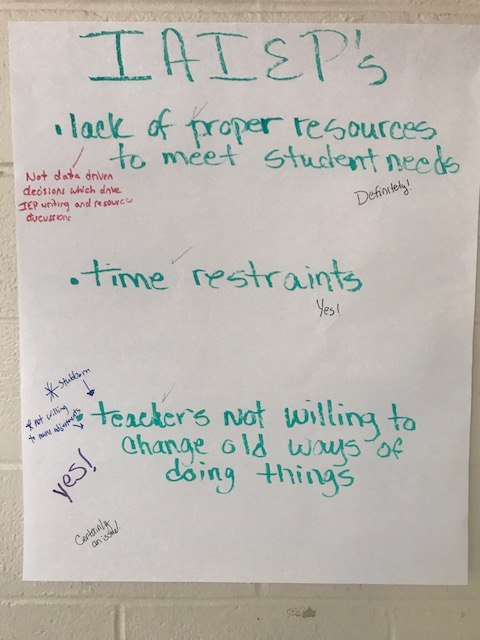 IAIEP's
• lack of proper resources
to meet student needs
Not data driven
decisions which drive
IEP writing and resource
discussions
Definitely!
• time restraints
Yes!
* stubborn
* not willing
to make adjustments
• teacher's not willing to
change old ways of
doing things
yes!
Certainly
an issue!